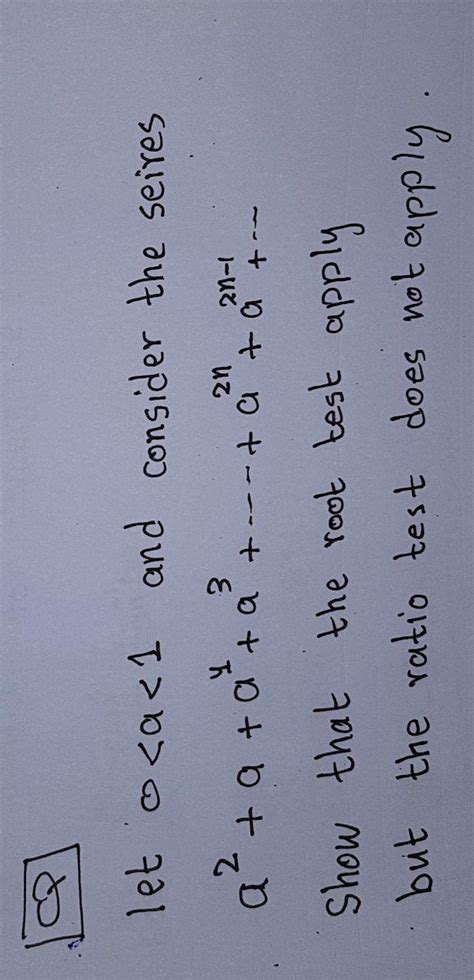 Q
let 0<a<1 and consider the seires
a² + a + a⁴ + a³ + ---- + a²ⁿ + a²ⁿ⁻¹ + ---
Show that the root test apply
but the ratio test does not apply.